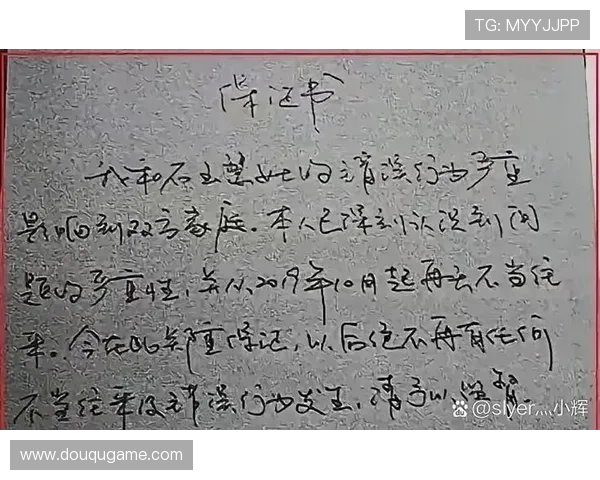 TG: MYYJJPP
保证书
我和石玉慧女士的错误行为严重
影响到双方家庭。本人已深刻认识到问
题的严重性，并从2019年10月起再无不当往
来。今在此郑重保证，以后绝不再有任何
不当往来及错误行为发生，请予以监督。
@slyer灬小辉
www.douqugame.com